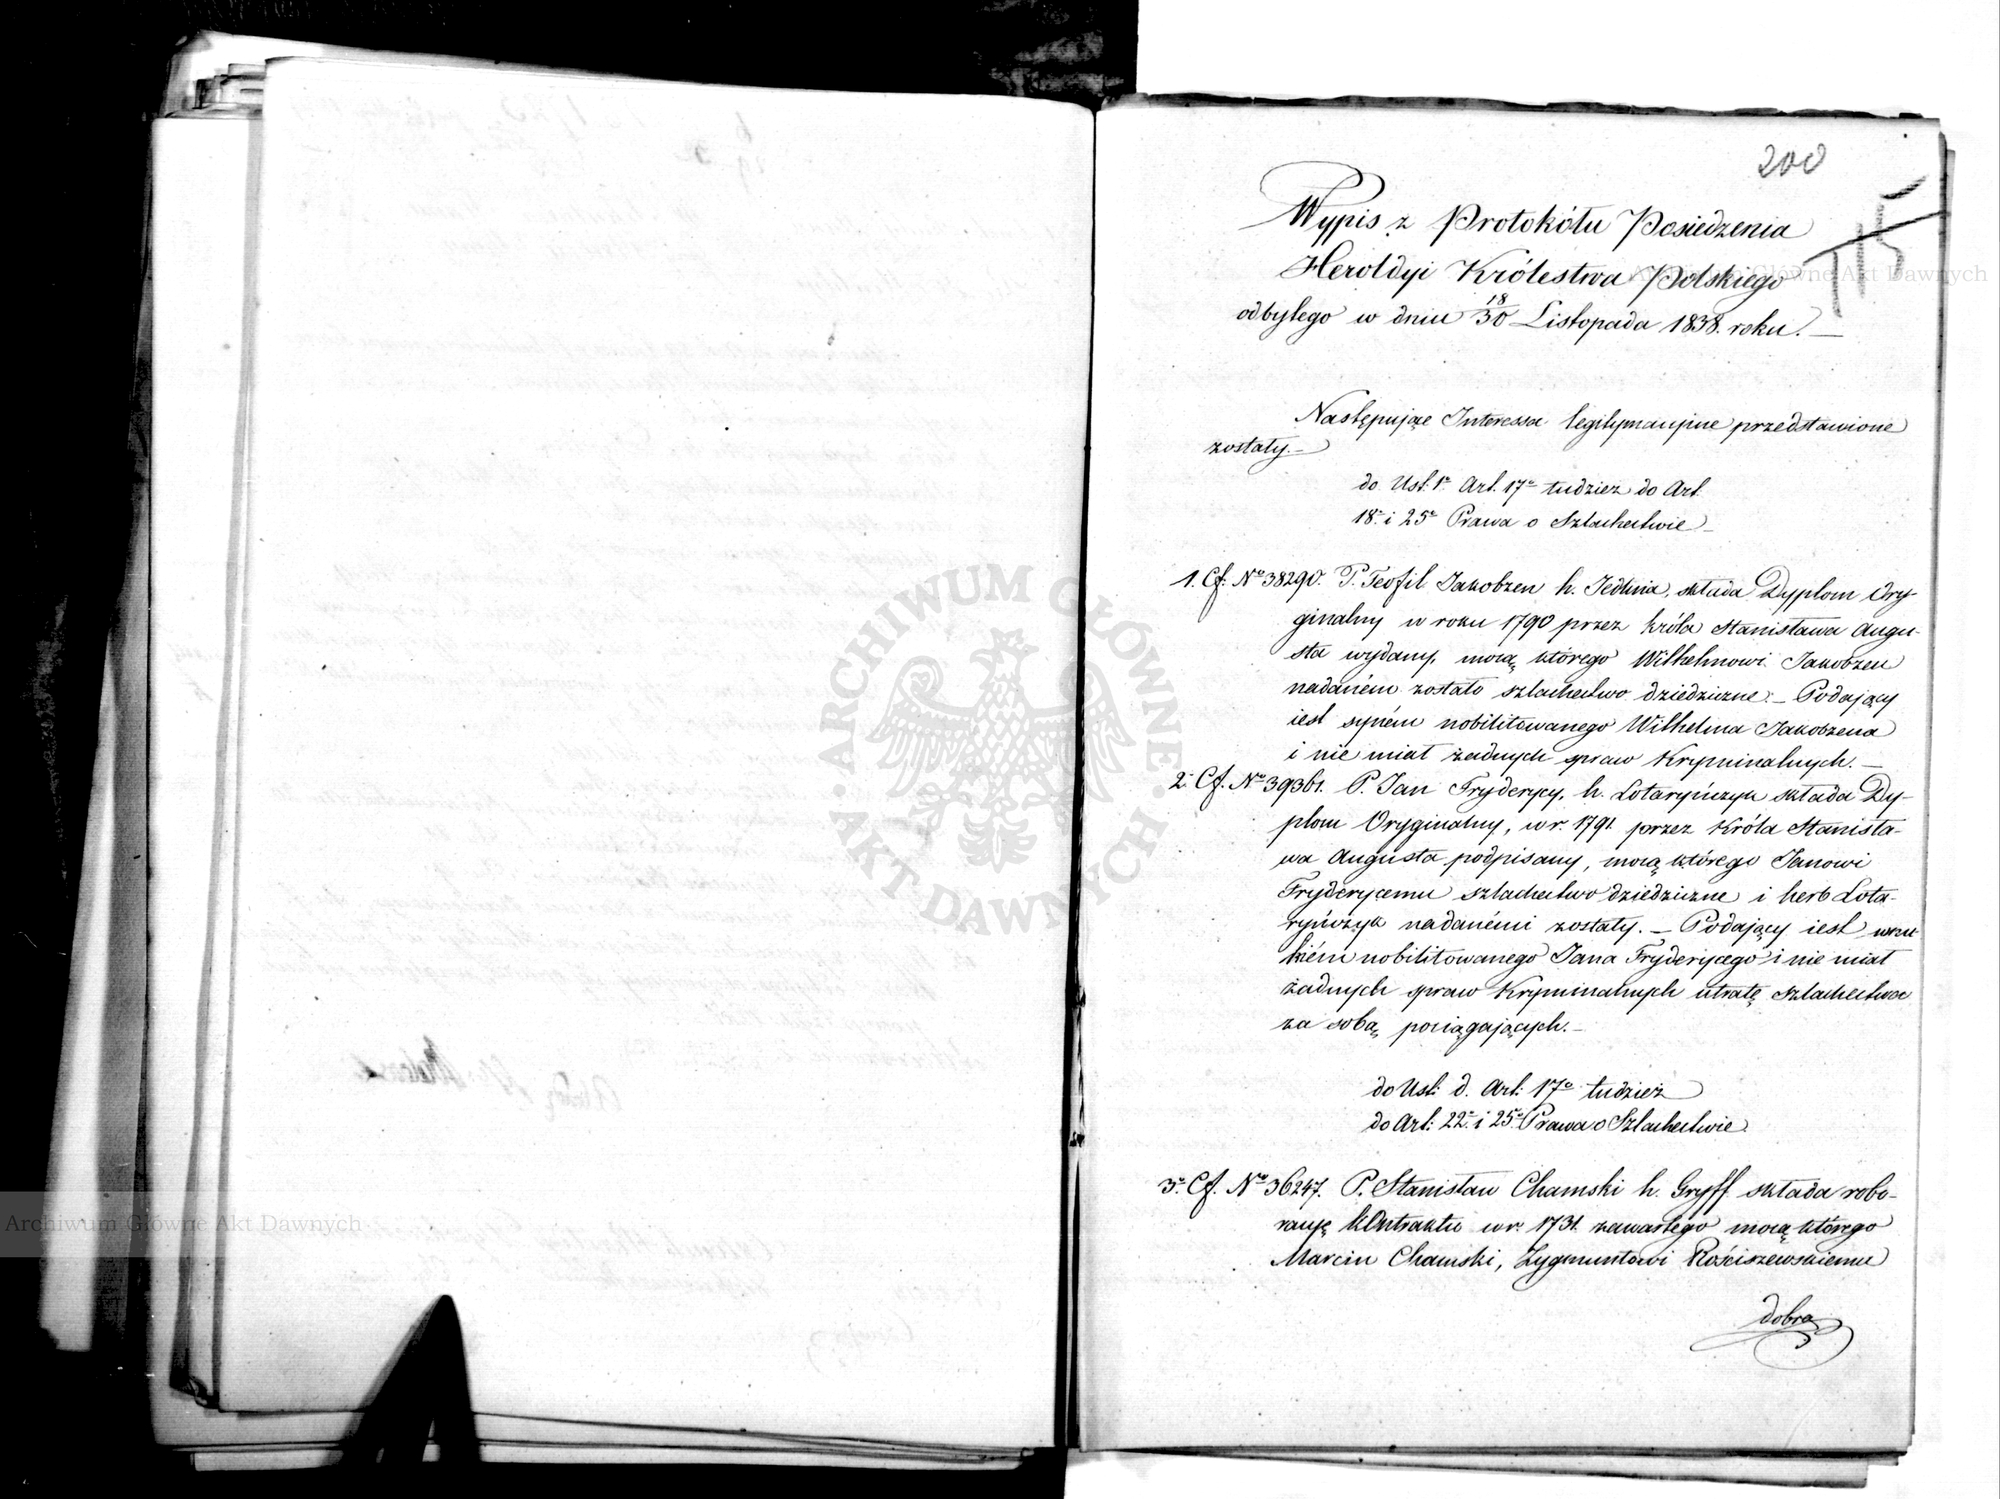 200
Wypis z Protokółu Posiedzenia
Heroldyi Królestwa Polskiego
odbytego w dniu 18/30 Listopada 1838. roku. —
Następujące Interessa legitymacyjne przedstawione
zostały. —
do Ust: 1º Art. 17º tudzież do Art.
18º i 25º Prawa o Szlachectwie —
1. Cf: Nº 38290. P. Teofil Jakobzen h. Jedlina, składa Dyplom Ory-
ginalny w roku 1790 przez króla Stanisława Augu-
sta wydany, mocą którego Wilhelmowi Jakobzen
nadaném zostało szlachectwo dziedziczne. — Podający
iest syném nobilitowanego Wilhelma Jakobzena
i nie miał żadnych spraw Kryminalnych. —
2. Cf. Nº 39361. P. Jan Fryderycy, h. Lotaryńczyk składa Dy-
plom Oryginalny, w r. 1791 przez Króla Stanisła-
wa Augusta podpisany, mocą którego Janowi
Fryderycemu szlachectwo dziedziczne i herb Lota-
ryńczyk nadanémi zostały. — Podający iest wnu-
kiém nobilitowanego Jana Fryderycego i nie miał
żadnych spraw Kryminalnych utratę szlachectwa
za sobą pociągających. —
do Ust: d. Art: 17º tudzież
do Art: 22º i 25º Prawa o Szlachectwie
3º Cf. Nº 36247. P. Stanisław Chamski h. Gryff składa robo-
racyę kontraktu w r. 1731 zawartego mocą którego
Marcin Chamski, Zygmuntowi Rościszewskiemu
dobra
ARCHIWUM GŁÓWNE
AKT DAWNYCH
Archiwum Główne Akt Dawnych
Archiwum Główne Akt Dawnych